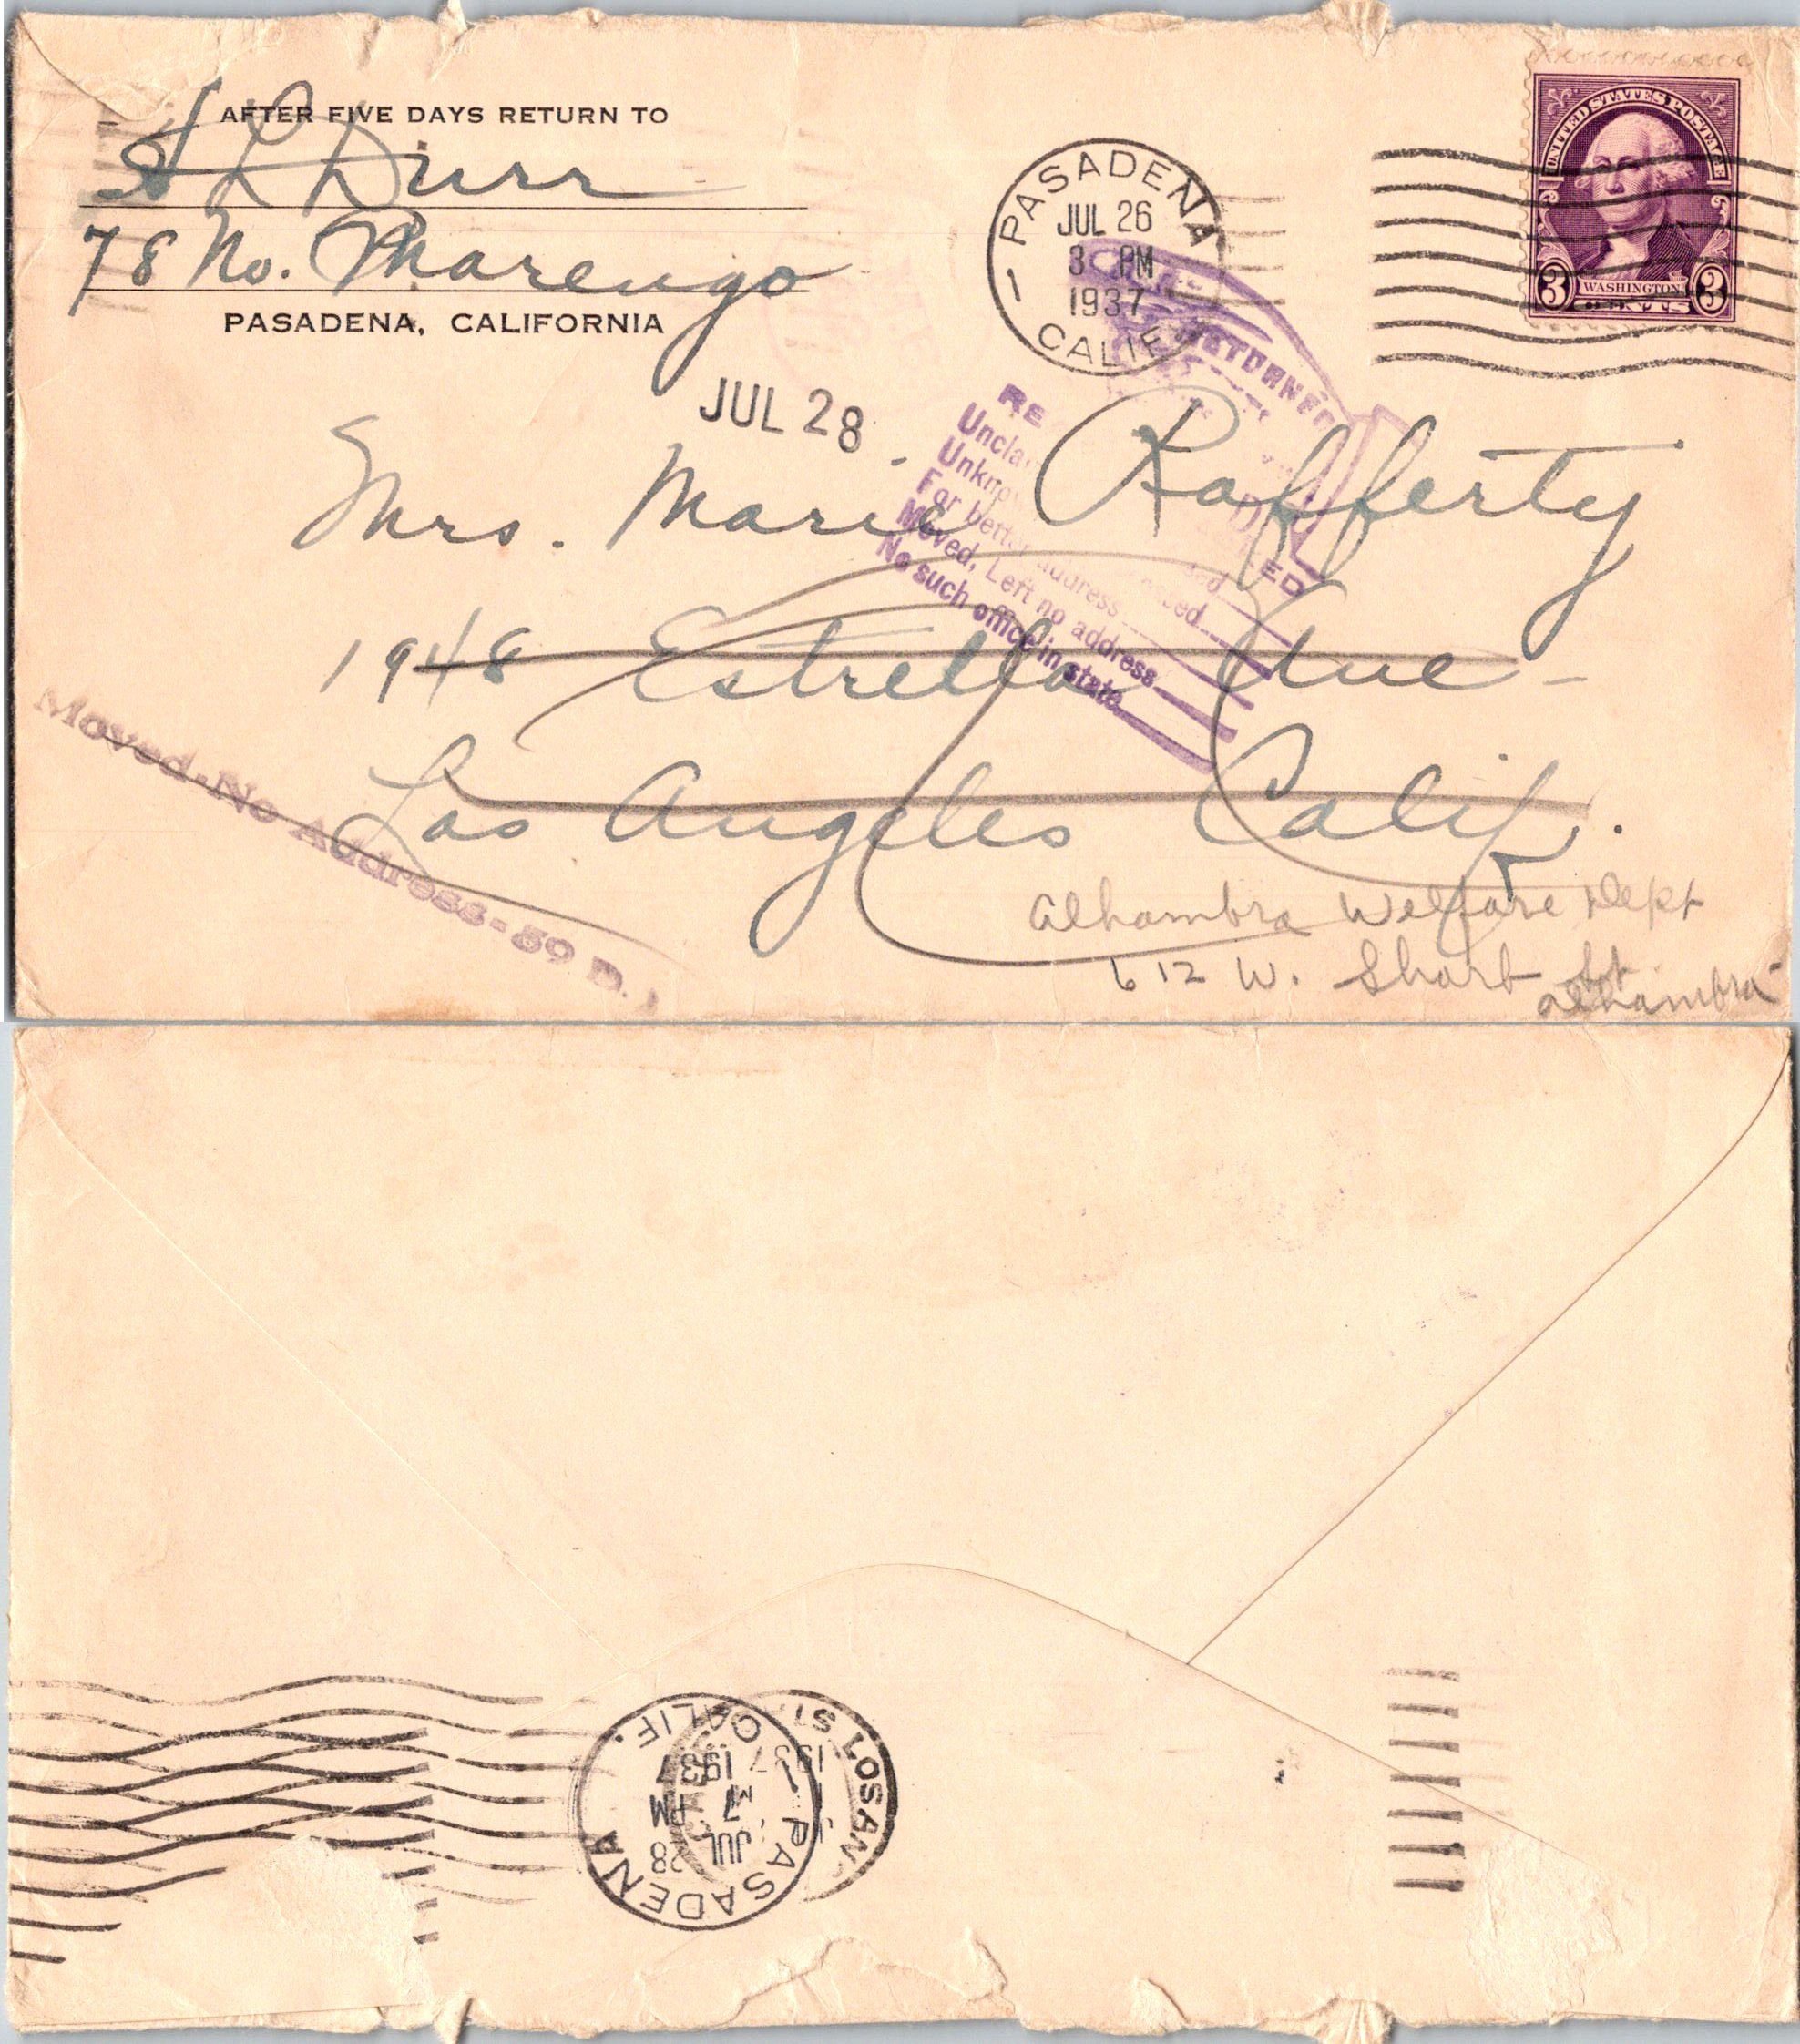 AFTER FIVE DAYS RETURN TO
A L Durr
78 No. Marengo
PASADENA, CALIFORNIA
PASADENA
JUL 26
3 PM
1937
CALIF
UNITED STATES POSTAGE
3 WASHINGTON 3
CENTS
JUL 28
RETURNED
Unknown
For better address
Moved, Left no address
No such office in state
Mrs. Marie Rafferty
1948 Estrella Ave
Los Angeles Calif.
Moved-No Address-59 D.
Alhambra Welfare Dept
612 W. Shorb St
Alhambra
PASADENA
CALIF.
JUL 28
7 PM
1937
LOS AN
193